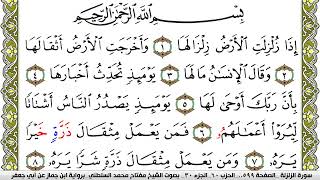 بِسْمِ اللَّهِ الرَّحْمَٰنِ الرَّحِيمِ
إِذَا زُلْزِلَتِ الْأَرْضُ زِلْزَالَهَا ١ وَأَخْرَجَتِ الْأَرْضُ أَثْقَالَهَا
٢ وَقَالَ الْإِنسَٰنُ مَا لَهَا ٣ يَوْمَئِذٍ تُحَدِّثُ أَخْبَارَهَا ٤
بِأَنَّ رَبَّكَ أَوْحَىٰ لَهَا ٥ يَوْمَئِذٍ يَصْدُرُ النَّاسُ أَشْتَاتًا
لِّيُرَوْا أَعْمَٰلَهُمُ ٦ فَمَن يَعْمَلْ مِثْقَالَ ذَرَّةٍ خَيْرًا
يَرَهُ ٧ وَمَن يَعْمَلْ مِثْقَالَ ذَرَّةٍ شَرًّا يَرَهُ ٨
سورة الزلزلة . الصفحة ٥٩٩ . الحزب ٦٠ . الجزء ٣٠ . بصوت الشيخ مفتاح محمد السلطني . برواية ابن جماز عن أبي جعفر